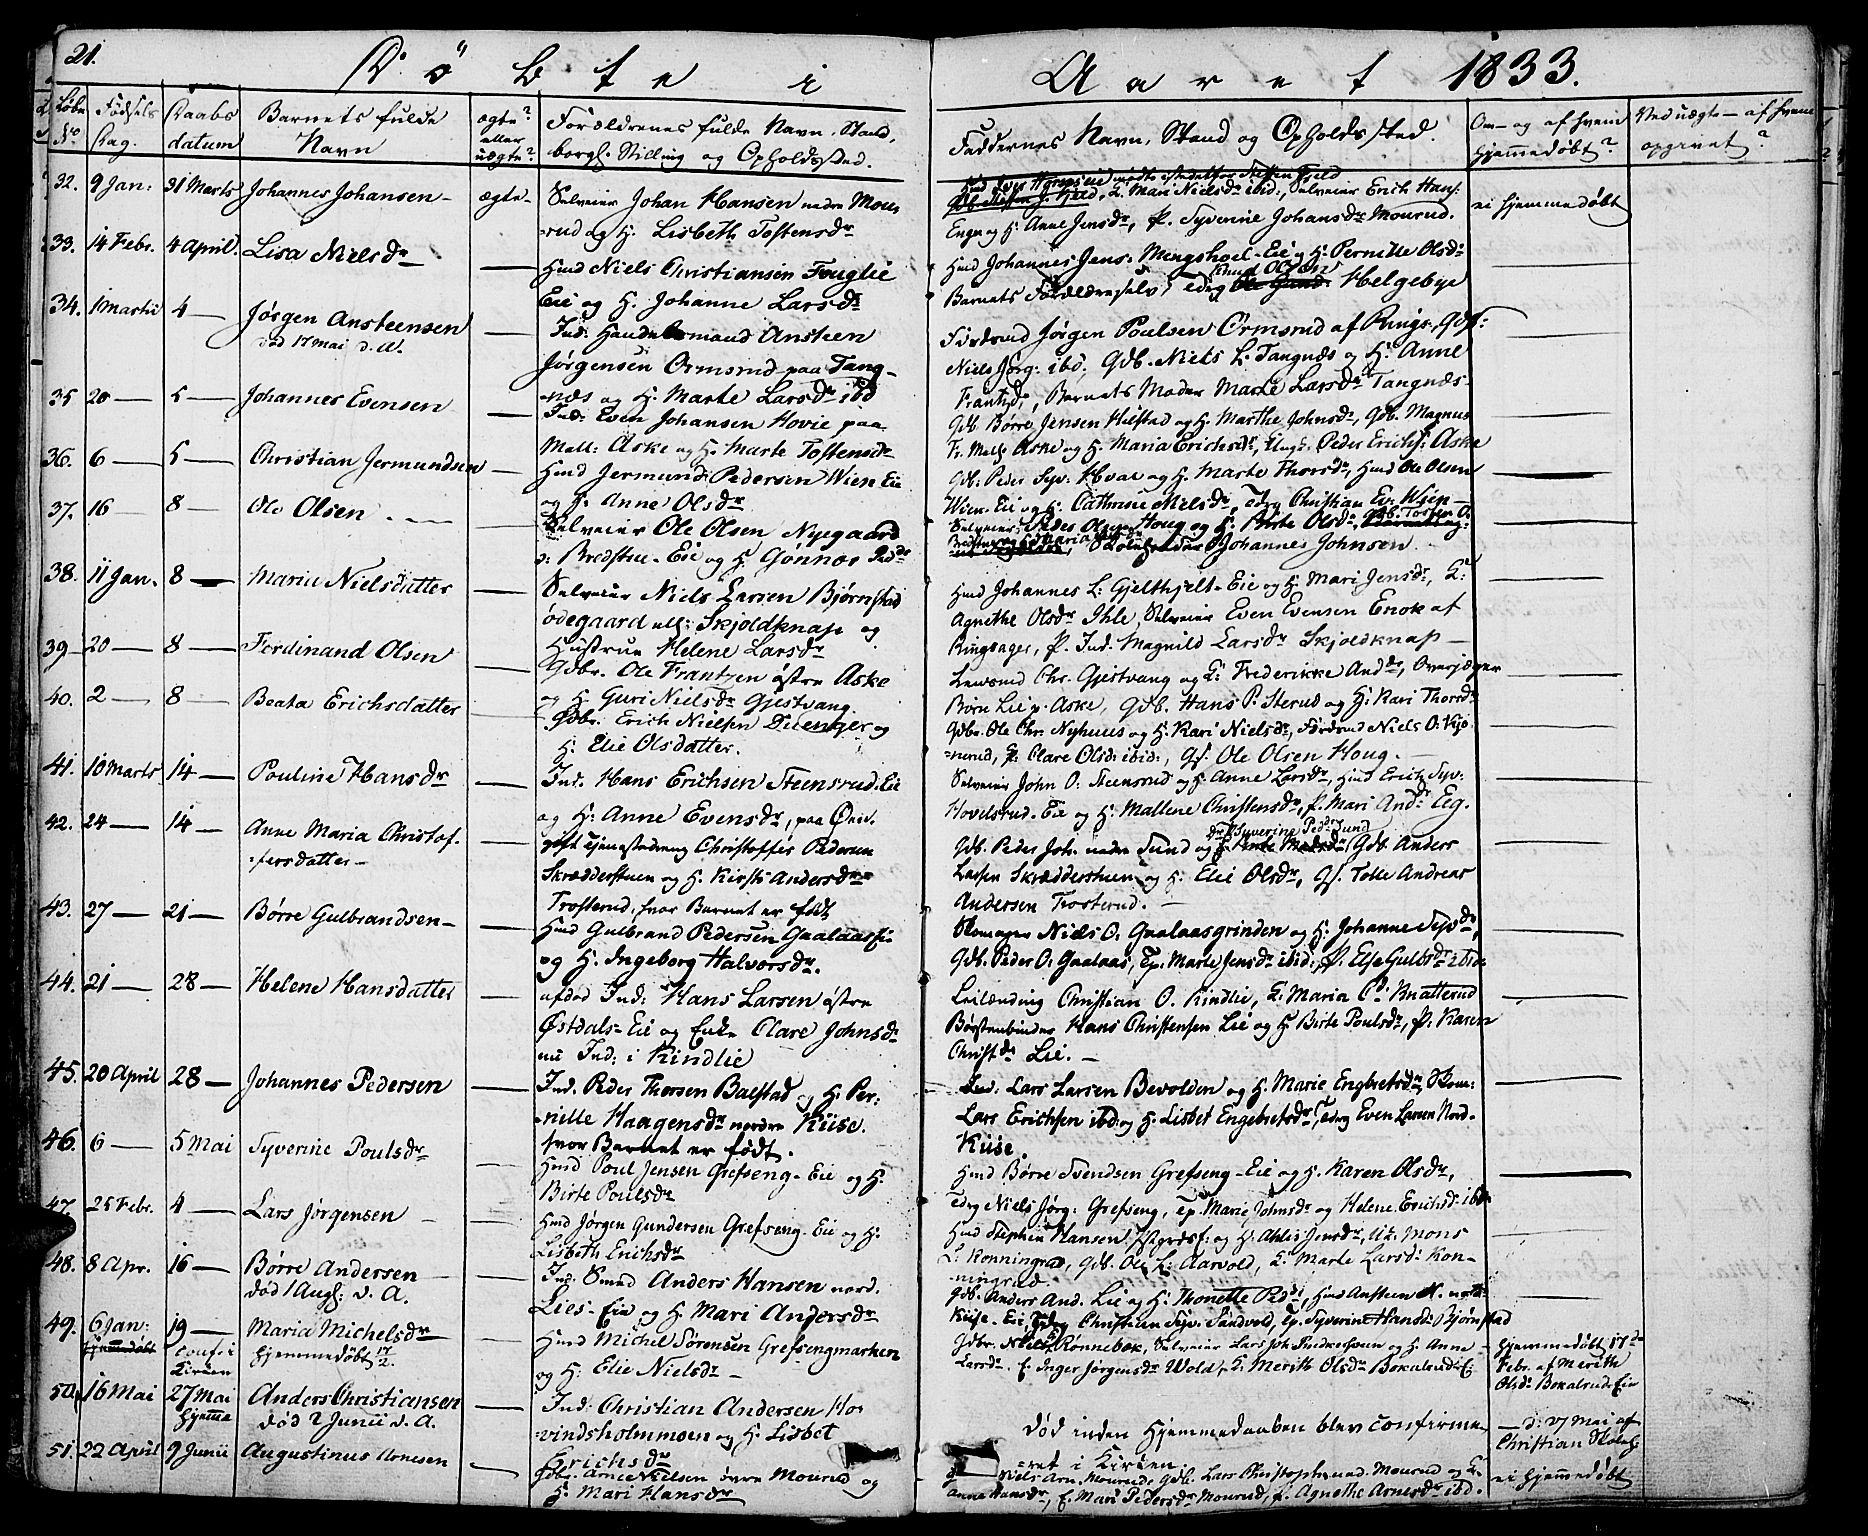 21.
Døbte i
Aaret 1833.
Løbe No
Fødsels Dag.
Daabs datum
Barnets fulde Navn
ægte? eller uægte?
Forældrenes fulde Navn, Stand, borgl. Stilling og Opholdssted.
Faddernes Navn, Stand og Opholdssted.
Om- og af hvem hjemmedøbt?
Ved uægte - af hvem opgivet?
32. 9 Jan: 31 Marts Johannes Johansen - ægte -
Selveier Johan Hansen nedre Mou-
rud og H. Lisbeth Tostensdr
G. Mari Nielsdr ibid:, Selveier Erich Hans:
Enge og H. Anne Jensdr, P. Syverine Johansdr Mourud.
ei hjemmedøbt
33. 14 Febr. 4 April. Lisa Nielsdr
Hmd Niels Christiansen Fouglie
Eie og H. Johanne Larsdr
Hmd Johannes Jens. Mengshoel-Eie og H. Pernille Olsdr
Barnets Forældre selv, Tdrg Knud Olsen Helgebye
34. 1 Martii 4 - Jørgen Ansteensen
død 17 Mai d. A.
Ind: Handelsmand Ansteen
Jørgensen Ormsrud paa Tang-
næs og H. Marte Larsdr ibd
Jørgen Poulsen Ormsrud af Rings.
Niels Jørg: ibd, Gdb. Niels L. Tangnæs og H. Anne
Frantzdr, Barnets Moder Marte Larsdr Tangnæs-
35 20 - 5 - Johannes Evensen
Ind: Even Johansen Hovie paa
Mell: Aske og H. Marte Tostensdr
Gdb Børre Jensen Hielstad og H. Marthe Johnsdr, Gdb. Magnus
Fr. Mell: Aske og H. Maria Erichsdr, Ungk. Peder Erichs: Aske
36. 6 - 5 - Christian Jermundsen
Hmd Jermund Pedersen Wien Eie
og H. Anne Olsdr
Gdb: Peder Syv: Hval og H. Marte Thorsdr, Hmd Ole Olsen
Wien-Eie og H. Cathrine Nielsdr, Tdrg Christian Ev: Wien -
37. 16 8 - Ole Olsen
Selveier Ole Olsen Nyegaard
d: Bredstue-Eie og H. Gonnor Peddr
Selveier Peder Olsen Houg og H. Birte Olsdr, Gdb. Tosten O.
Johannes Johnsen.
38. 11 Jan. 8 - Maria Nielsdatter
Selveier Niels Larsen Bjørnstad
ødegaard ell: Skjoldknap og
Hustrue Helene Larsdr
Hmd Johannes L: Gjelthjelt-Eie og H. Mari Jensdr, G:
Agnethe Olsdr Ihle, Selveier Even Evensen Enok af
Ringsager, P. Ind. Magnild Larsdr Skjoldknap -
39 - 20 - 8 - Ferdinand Olsen
Gdbr. Ole Frantzen østre Aske
og H. Guri Nielsdr Gjestvang.
Lensmd Chr. Gjestvang og G: Frederikke Anddr, Overjæger
Børn Lie p. Aske, Gdb. Hans P. Sterud og H. Kari Thorsdr
40. 2 - 8 - Beata Erichsdatter
Gdbr. Erich Nielsen Duenger og
H. Elie Olsdatter.
Gdbr. Ole Chr. Nyhuus og H. Kari Nielsdr, Niels O: Kjo
=nerud, P. Clare Olsdr ibid:, Gf. Ole Olsen Houg. -
41. 10 Marts 14 - Pouline Hansdr
Ind. Hans Erichsen Steensrud. Eie
og H. Anne Evensdr,
Selveier John O. Steensrud og H. Anne Larsdr, Hmd Erich Syv:
Hovelsrud-Eie og H. Mallene Christensdr, P. Mari Anddr Eig.
42. 24 - 14 - Anne Maria Christof-
:fersdatter -
gift Tjenestedreng Christoffer Pedersen
Skrædderstuen og H. Kirsti Andersdr
Trosterud, hvor Barnet er født
Gdb. Peder Joh. nedre Sund og Syverine Peddr Sund Gdb. Anders
Larsen Skrædderstuen og H. Elie Olsdr, Gf. Tolle Andreas
Andersen Trosterud. -
43. 27 - 21 - Børre Gulbrandsen -
Hmd Gulbrand Pedersen Gaalaas E.
og H. Ingeborg Halvorsdr.
Skomager Niels O. Gaalaasgrinden og H. Johanne Syvdr,
Gdb. Peder O: Gaalaas, Tp. Marte Jensdr ibid:, P. Else Gulbdr ibid
44. 21 - 28 - Helene Hansdatter
afdød Ind: Hans Larsen østre
Østdals-Eie og Enke Clare Johnsdr
nu Ind: i Kindlie
Leilænding Christian O. Kindlie, G. Maria Knatterud
Børstenbinder Hans Christensen Lie og H Birte Poulsdr, P. Karen
Christdr Lie. -
45. 20 April 28 - Johannes Pedersen
Ind. Peder Thorsen Balstad og H. Per-
nille Haagensdr nordre Kiise.
hvor Barnet er født.
Ind. Lars Larsen Bevolden og H. Marie Engbretsdr, Skom:
Lars Erichsen ibd: og H. Lisbet Engebretsdr, Tdrg Even Larsen Nord-
Kiise.
46. 6 - 5 Mai Syverine Poulsdr
Hmd Poul Jensen Grefseng-Eie og H.
Birte Poulsdr
Hmd Børre Svendsen Grefseng-Eie og H. Karen Olsdr,
Tdrg Niels Jørg: Grefseng, Tp. Marie Johnsdr og Helene Erichsdr ibd
47. 25 Febr. 4 - Lars Jørgensen
Hmd Jørgen Gundersen Grefseng-Eie og H.
Lisbeth Erichsdr
Hmd Stephen Hansen og H. Ahlis Jensdr, Mons
L: Konningrud, Gdb. Ole L: Aarvold, G. Marte Larsdr Kon-
ningrud
48. 8 Apr. 16 - Børre Andersen
død 1 Augs: d. A.
Ind. Smed Anders Hansen nord.
Lies-Eie og H. Mari Andersdr
Gdb. Anders And. Lie og H. Thonette Peddr, Hmd Ansteen N. nordr
Kiise-Eie, Tdrg Christian Syv. Sandvold, Tp. Syverine Hansdr Bjørnstad
49. 6 Jan: 19 - Maria Michelsdr
hjemmedøbt
conf: i Kirken
hjemmedøbt 17/2.
Hmd Michel Sørensen Grefsengmarken
og H. Elie Nielsdr -
Gdbr. Niels Rønnebek, Selveier Lars og H. Anne
Larsdr. E. Inger Jørgensdr Wold, G. Merith Olsdr Bekalrud E:
hjemmedøbt 17de
Febr. af Merithe
Olsdr Bekalrud Eie
50. 16 Mai 27 Mai Anders Christiansen
hjemme
død 2 Junii d. A.
Ind: Christian Andersen Ho-
vindsholmmoen og H. Lisbet
Erichsdr
Død inden Hjemmedaaben blev confirme-
=ret i Kirken.
- d. 27 Mai af
Christian
51. 22 April 9 Junii Augustinus Arnesen
Gdbr. Arne Nielsen øvre Mourud og
H. Mari Hansdr
Niels Arn. Mourud, Gdb. Lars Christophs: Mourud og G:
Anne Hansdr, E. Mari Pedersdr Mourud, P. Agnethe Arnesdr ibd.
ei hjemmedøbt